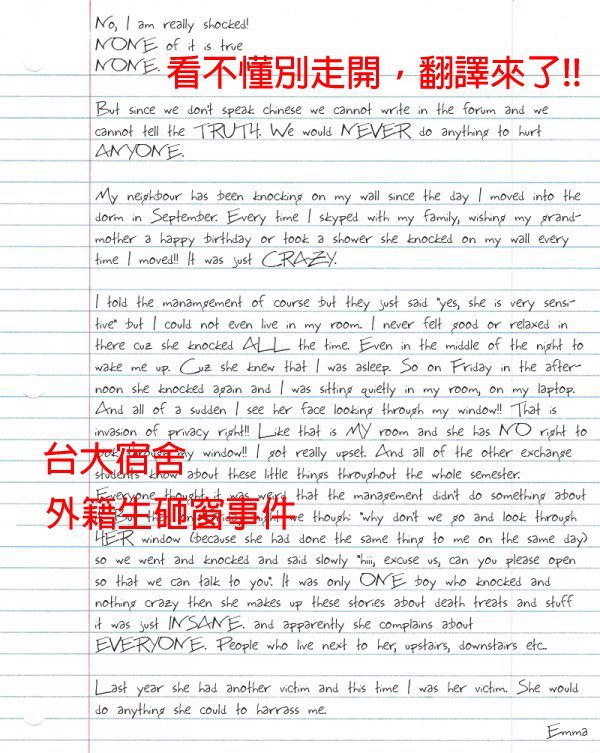 No, I am really shocked!
NONE of it is true
NONE.
看不懂別走開，翻譯來了!!
But since we don't speak chinese we cannot write in the forum and we
cannot tell the TRUTH. We would NEVER do anything to hurt
ANYONE.
My neighbour has been knocking on my wall since the day I moved into the
dorm in September. Every time I skyped with my family, wishing my grand-
mother a happy birthday or took a shower she knocked on my wall every
time I moved!! It was just CRAZY.
I told the manamgement of course but they just said "yes, she is very sensi-
tive" but I could not even live in my room. I never felt good or relaxed in
there cuz she knocked ALL the time. Even in the middle of the night to
wake me up. Cuz she knew that I was asleep. So on Friday in the after-
noon she knocked again and I was sitting quietly in my room, on my laptop.
And all of a sudden I see her face looking through my window!! That is
invasion of privacy right!! Like that is MY room and she has NO right to
my window!! I got really upset. And all of the other exchange
students know about these little things throughout the whole semester.
Everyone thought it was weird that the management didn't do something about
But the we though: "why don't we go and look through
HER window (because she had done the same thing to me on the same day)
so we went and knocked and said slowly "hiii, excuse us, can you please open
so that we can talk to you". It was only ONE boy who knocked and
nothing crazy then she makes up these stories about death treats and stuff
it was just INSANE. and apparently she complains about
EVERYONE. People who live next to her, upstairs, downstairs etc..
台大宿舍
外籍生砸窗事件
Last year she had another victim and this time I was her victim. She would
do anything she could to harrass me.
Emma